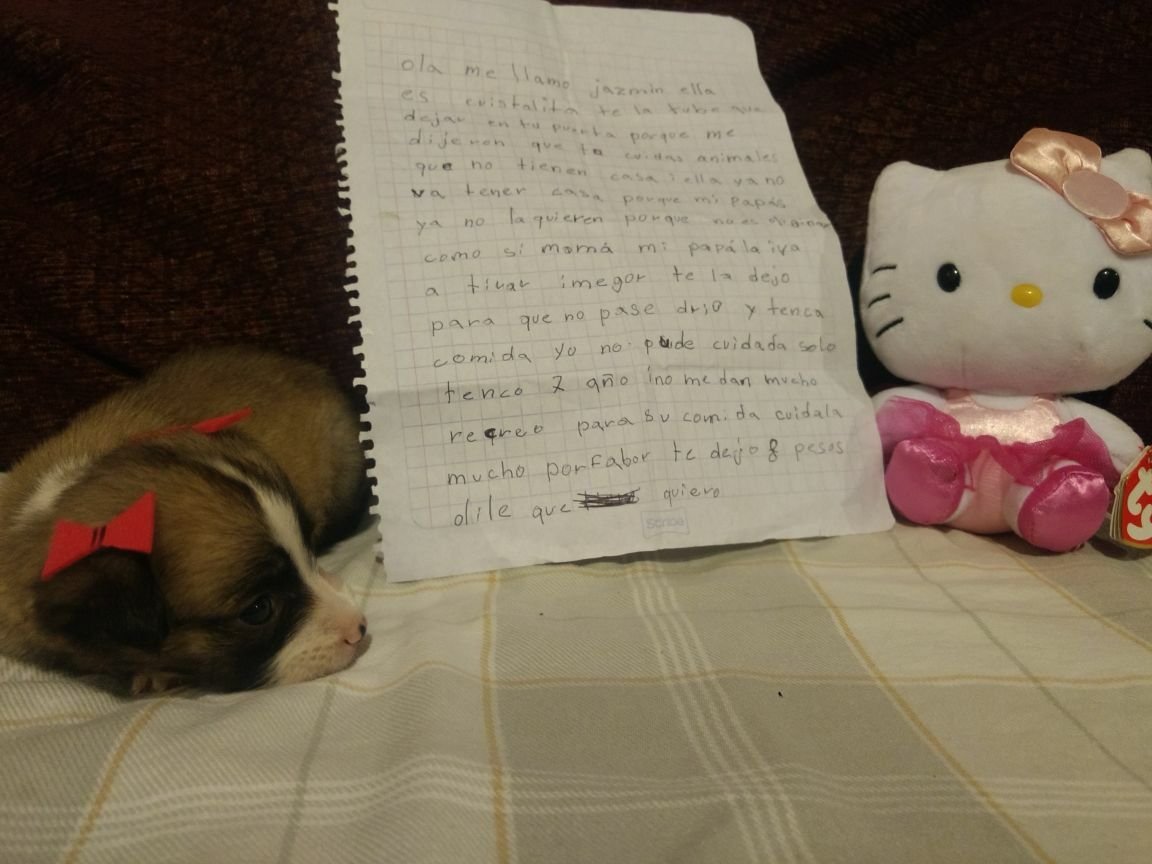 ola me llamo jazmin ella
es cristalita te la tube que
dejar en tu puerta porque me
dijeron que tu cuidas animales
que no tienen casa i ella ya no
va tener casa porque mi papás
ya no la quieren porque no es
como si mamá mi papá la iva
a tirar imegor te la dejo
para que no pase drio y tenca
comida yo no pude cuidada solo
tenco 7 año ino me dan mucho
recreo para su comida cuidala
mucho porfabor te dejo 8 pesos
dile que quiero
scribe
ty